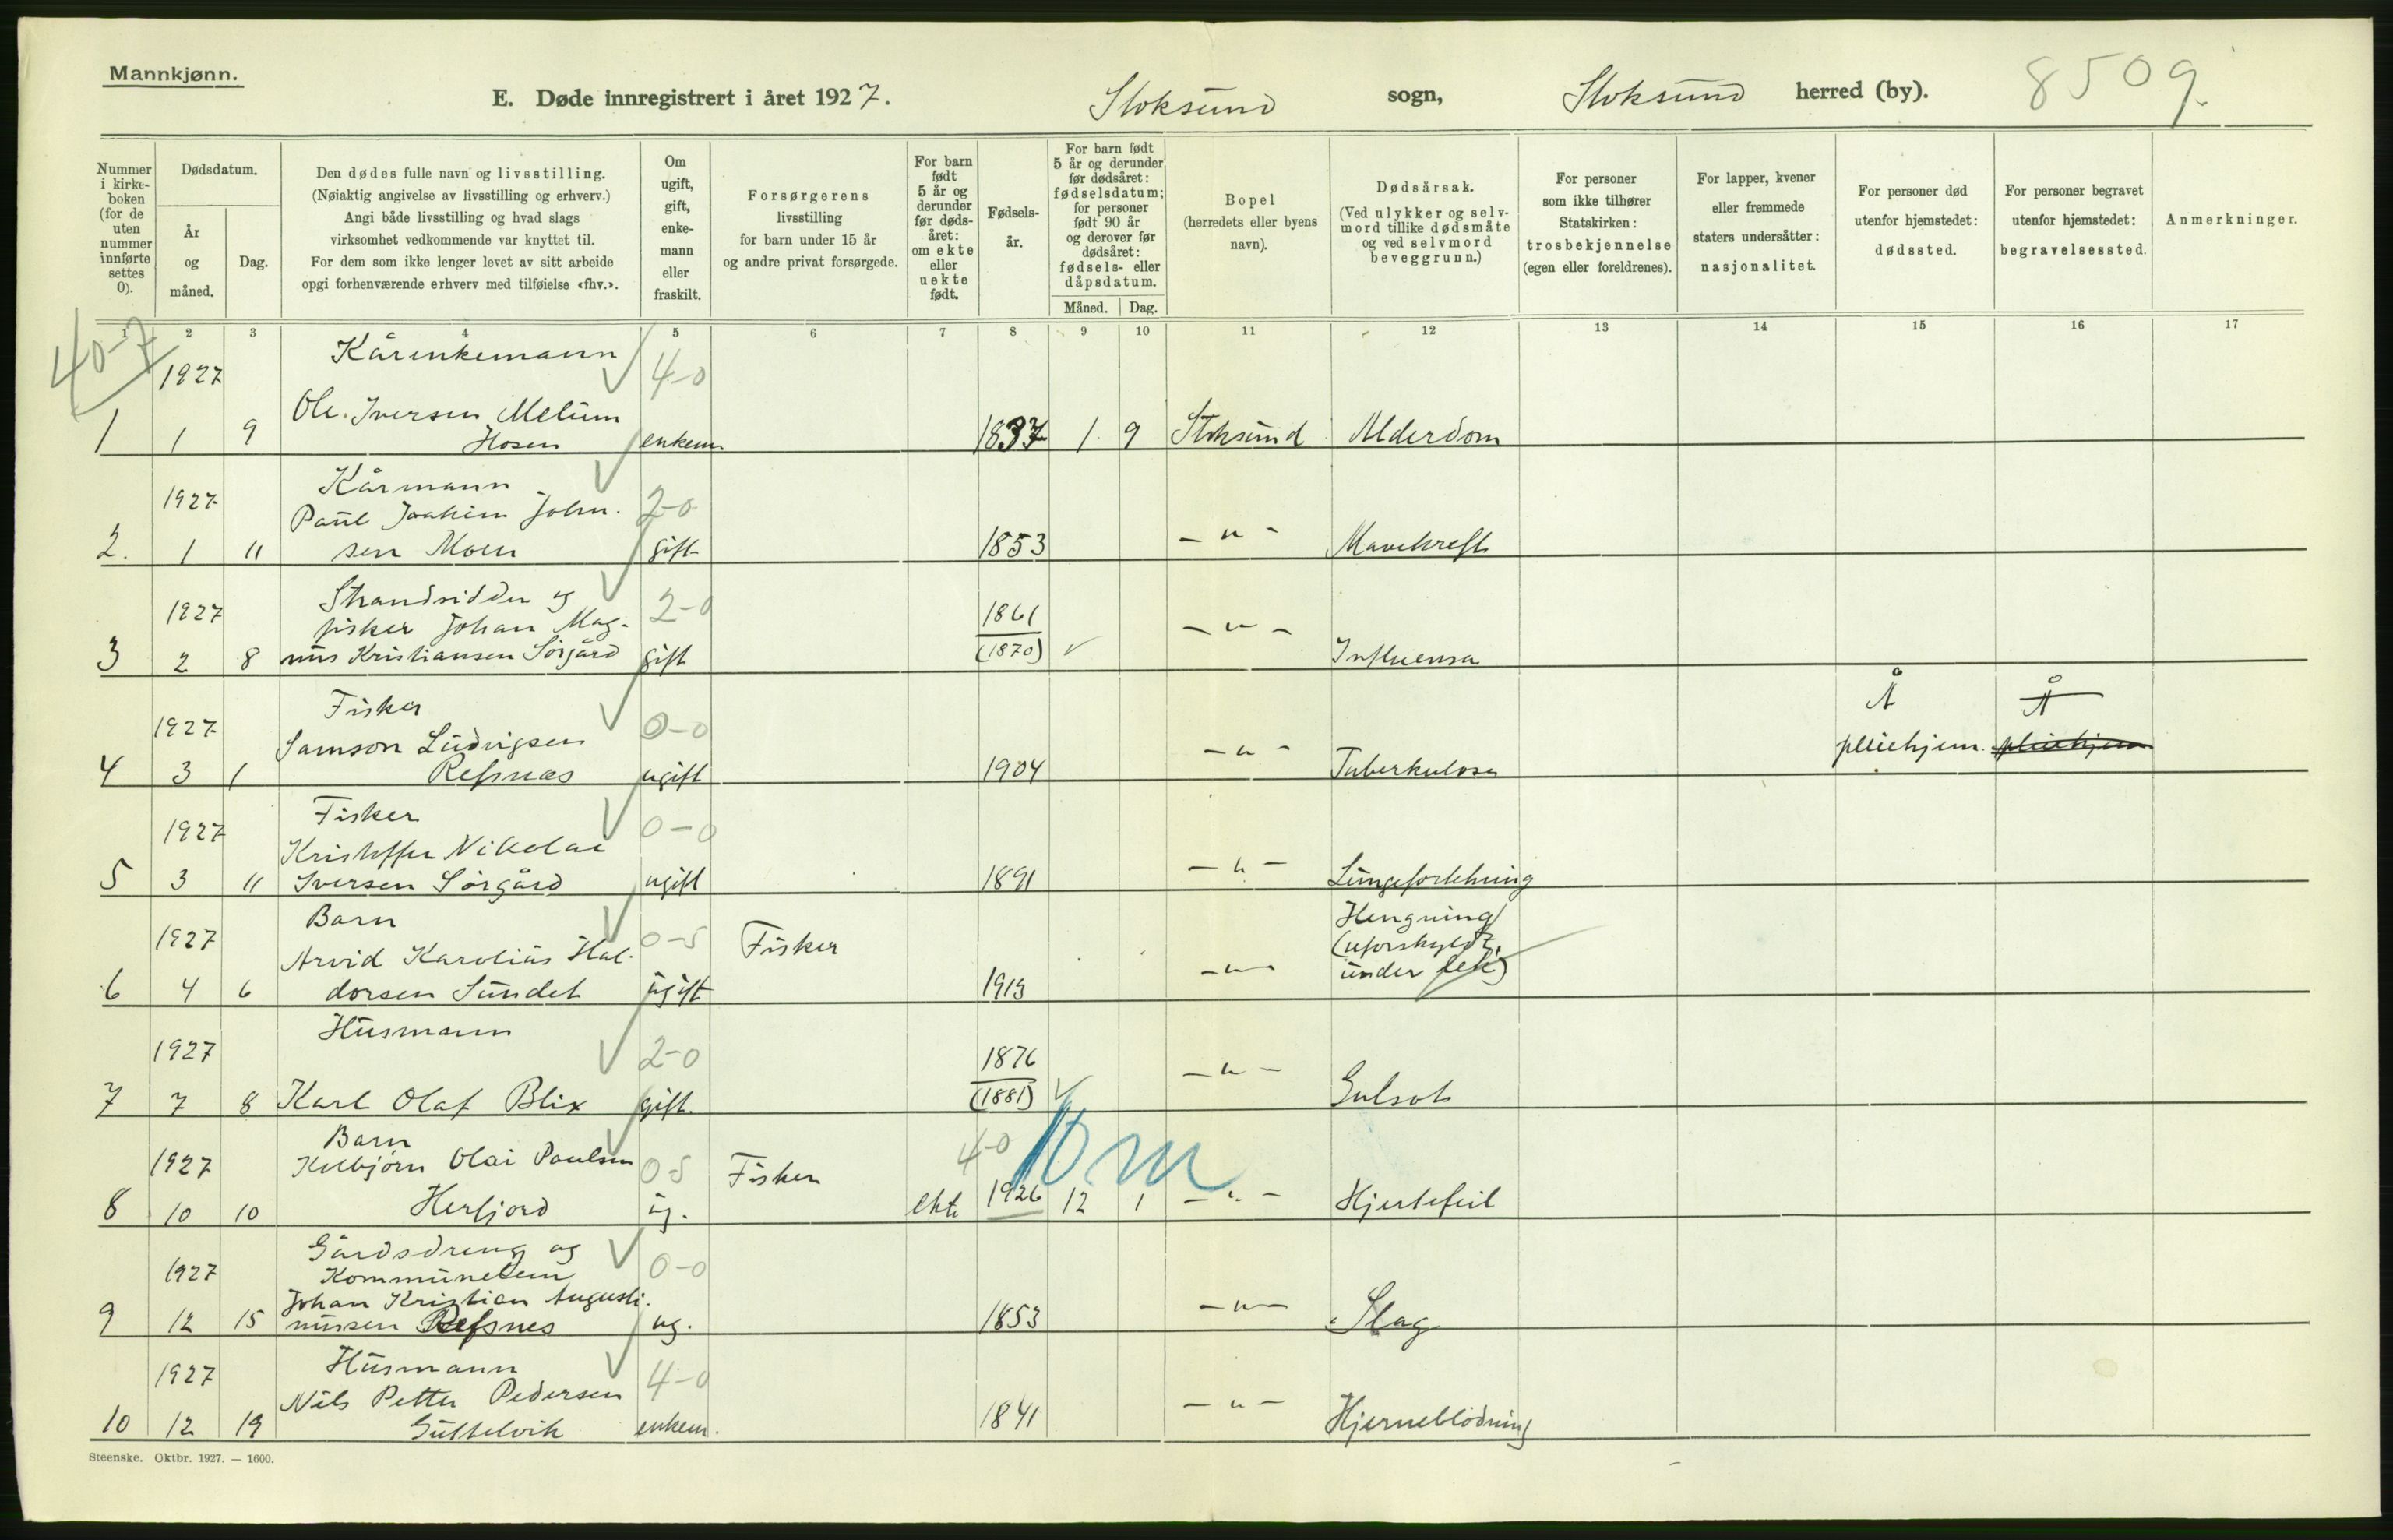 Mannkjønn.
E. Døde innregistrert i året 1927. Stoksund sogn, Stoksund herred (by). 8509.
Nummer i kirkeboken (for de uten nummer innførte settes 0).
Dødsdatum.
År og måned.
Dag.
Den dødes fulle navn og livsstilling.
(Nøiaktig angivelse av livsstilling og erhverv.)
Angi både livsstilling og hvad slags
virksomhet vedkommende var knyttet til.
For dem som ikke lenger levet av sitt arbeide
opgi forhenværende erhverv med tilføielse «fhv.».
Om ugift, gift, enkemann eller fraskilt.
Forsørgerens
livsstilling
for barn under 15 år
og andre privat forsørgede.
For barn født 5 år og derunder før dødsåret: om ekte eller uekte født.
Fødselsår.
For barn født
5 år og derunder
før dødsåret:
fødselsdatum;
for personer
født 90 år
og derover før
dødsåret:
fødsels- eller
dåpsdatum.
Måned. Dag.
Bopel
(herredets eller byens
navn).
Dødsårsak.
(Ved ulykker og selvmord tillike dødsmåte
og ved selvmord
beveggrunn.)
For personer
som ikke tilhører
Statskirken:
trosbekjennelse
(egen eller foreldrenes).
For lapper, kvener
eller fremmede
staters undersåtter:
nasjonalitet.
For personer død
utenfor hjemstedet:
dødssted.
For personer begravet
utenfor hjemstedet:
begravelsessted.
Anmerkninger.
1 2 3 4 5 6 7 8 9 10 11 12 13 14 15 16 17
40-7
1927 Kårenkemann 4-0
Ole Iversen Melum
1 1 9 Hosen enkem 1837 1. 9 Stoksund Alderdom
1927 Kårmann 2-0
Paul Joakim John-
2. 1 11 sen Moen gift 1853 - " - Mavekreft
1927 Strandsidder og 2-0 1861
fisker Johan Mag-
3 2 8 nus Kristiansen Sørgård gift (1870) - " - Influensa
1927 Fisker 0-0 Å Å
Samson Ludvigsen pleiehjem. pleiehjem
4 3 1 Refsnas ugift 1904 - " - Tuberkulose
1927 Fisker 0-0
Kristoffer Nikolai
5 3 11 Iversen Sørgård ugift 1891 - " -
1927 Barn 0-5 Fisker Hengning
Arvid Karolius Hal- (uforskyldt,
6 4 6 dorsen Sundet ugift 1913 - " - under lek)
1927 Husmann 2-0 1876
7 7 8 Karl Olaf Blix gift. (1881) - " - Gulsot
1927 Barn 4-0 10 m
Kolbjørn Olai Paulsen 0-5 Fisker
8 10 10 Herfjord ug. ekte 1926 12 1 - " - Hjertefeil
1927 Gårdsdreng og 0-0
Kommunelem
Johan Kristian Augusti-
9 12 15 nussen Refsnes ug. 1853 - " - Slag
1927 Husmann 4-0
Nils Petter Pedersen
10 12 19 enkem. 1841 - " - Hjerneblødning
Steenske. Oktbr. 1927. — 1600.